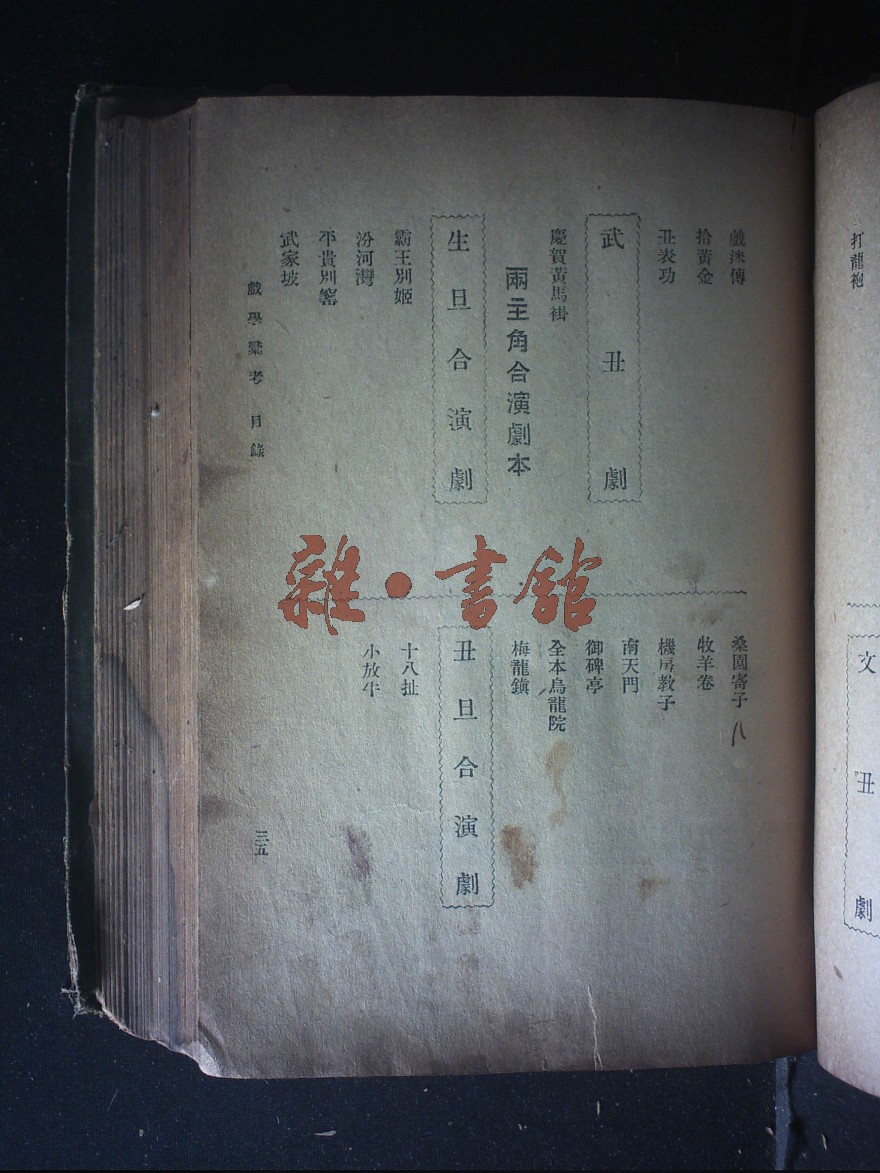 打龍袍
文丑劇
戲迷傳
拾黃金
丑表功
武丑劇
慶賀黃馬褂
兩主角合演劇本
生旦合演劇
霸王別姬
汾河灣
平貴別窰
武家坡
桑園寄子
牧羊卷
機房教子
南天門
御碑亭
全本烏龍院
梅龍鎭
丑旦合演劇
十八扯
小放牛
戲學彙考 目錄
三五
雜·書館